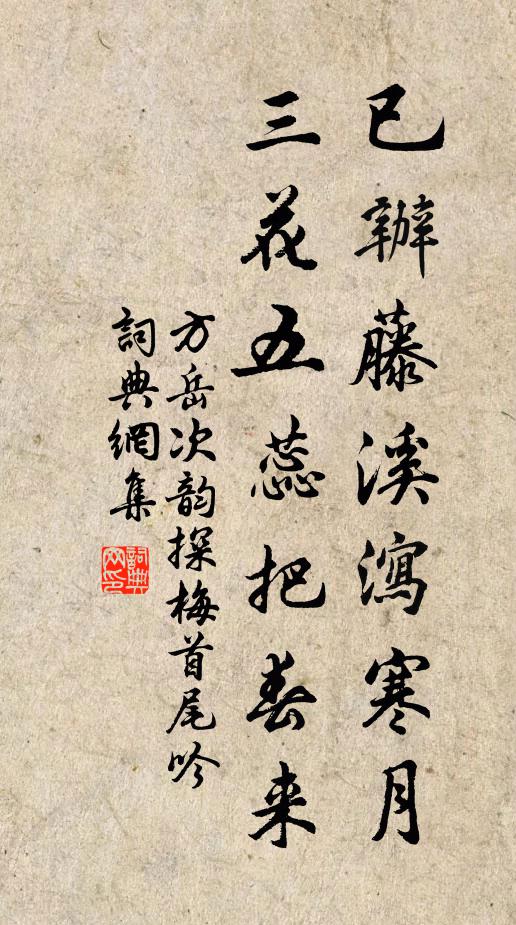 已辦藤溪瀉寒月
三花五蕊把春来
方岳次韵探梅首尾吟
詞典網集
詞典網印